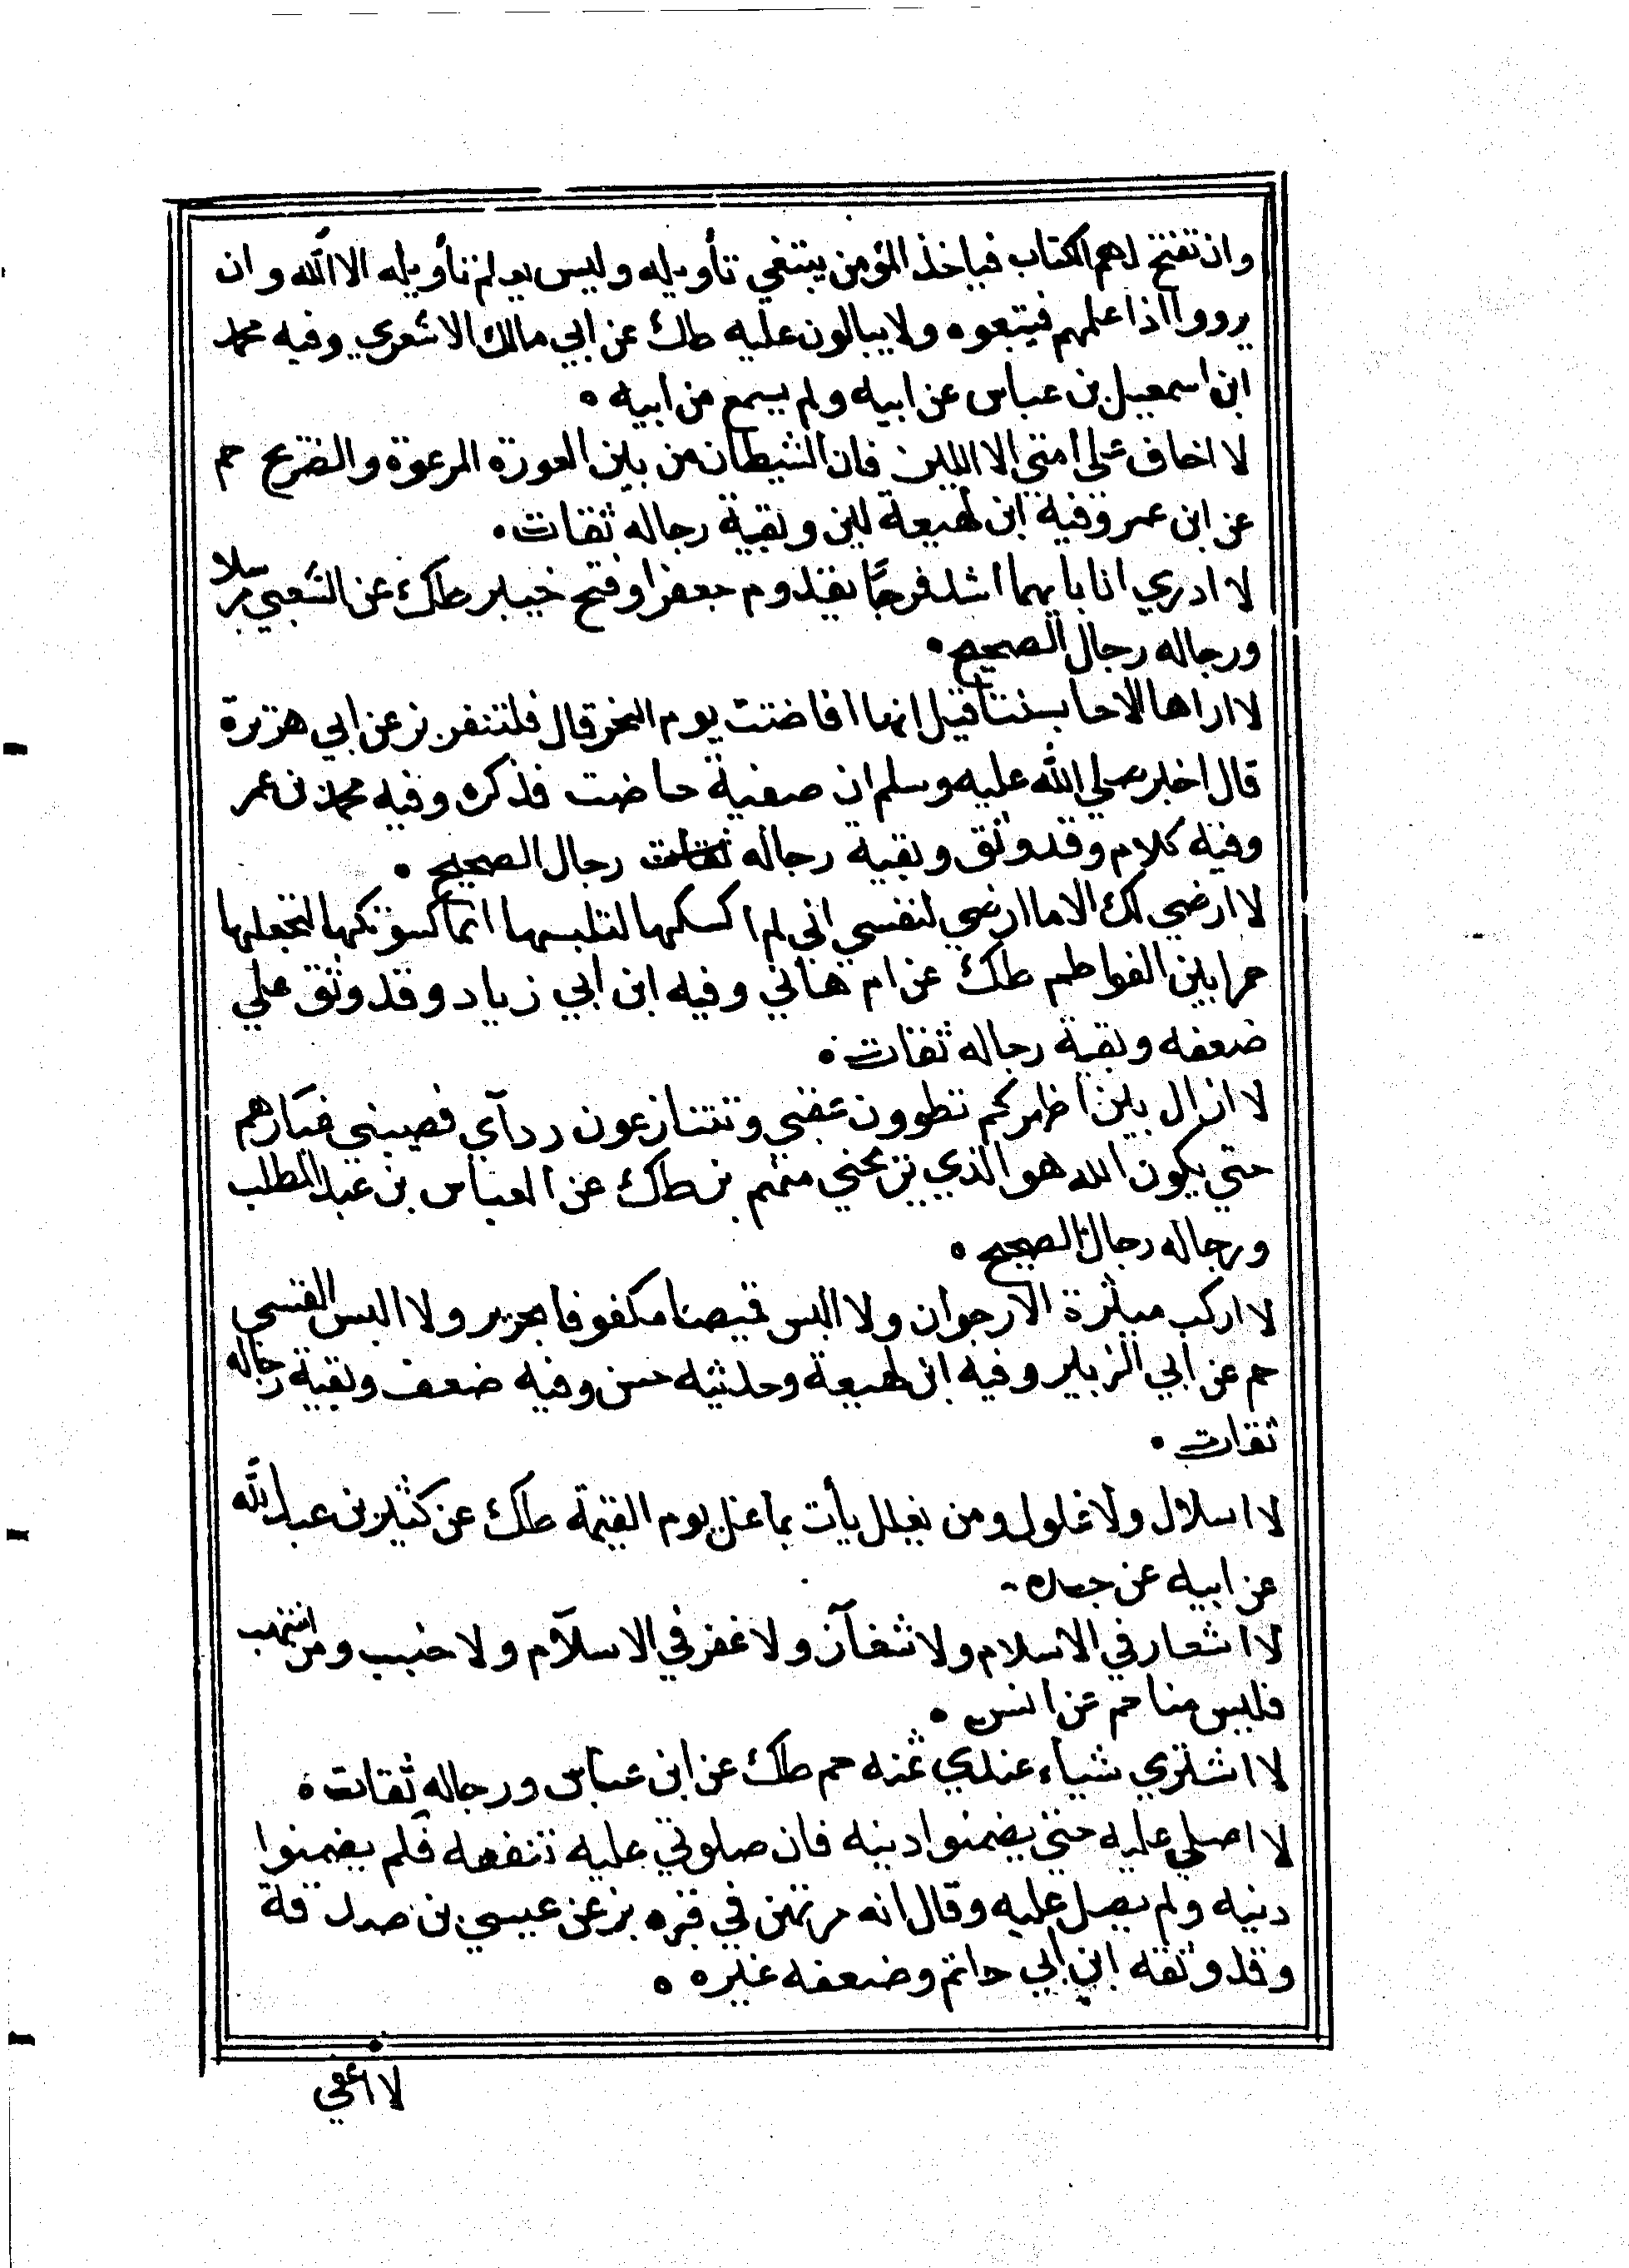 وان تفتح لهم الكتاب فياخذ المؤمن يبتغي تأويله وليس يعلم تأويله الا الله وان
يرووا اذا علمهم فيتبعوه ولا يبالون عليه طك عن ابي مالك الاشعري وفيه محمد
ابن اسمعيل بن عباس عن ابيه ولم يسمع من ابيه ٥
لا اخاف على امتي الا اللبن فان الشيطان من بين العورة المرعوة والضريح حم
عن ابن عمر وفية ابن لهيعة لين وبقية رجاله ثقات
لا ادري انا بايهما اشد فرحا بقدوم جعفر او فتح خيبر طك عن الشعبي مرسلا
ورجاله رجال الصحيح
لا اراها الا حابستنا قيل انها افاضت يوم النحر قال فلتنفر بز عن ابي هريرة
قال اخبر صلي الله عليه وسلم ان صفية حاضت فذكره وفيه محمد بن عمر
وفيه كلام وقد وثق وبقية رجاله ثقات رجال الصحيح
لا ارضي لك الا ما ارضي لنفسي اني لم اكسكها لتلبسها انما كسوتكها لتجعلها
خمرا بين الفواطم طك عن ام هاني وفيه ابن ابي زياد وقد وثق علي
ضعفه وبقية رجاله ثقات
لا ازال بين اظهركم تطوون عقبي وتتنازعون ردآي فصيبني غبارهم
حتي يكون الله هو الذي يزيحني منهم بز طك عن العباس بن عبد المطلب
ورجاله رجال الصحيح
لا اركب ميثرة الارجوان ولا البس قميصا مكفوفا بحرير ولا البس القسي
حم عن ابي الزبير وفيه ابن لهيعة وحديثه حسن وفيه ضعف وبقية رجاله
ثقات
لا اسلال ولا غلول ومن يغلل يأت بما غل يوم القيمة طك عن كثير بن عبد الله
عن ابيه عن جده
لا اشعار في الاسلام ولا شغآر ولا عفر في الاسلآم ولا جنب ومن انتهب
فليس منا حم عن انس
لا اشتري شياء عندي ثمنه حم طك عن ابن عباس ورجاله ثقات
لا اصلي عليه حتي يضمنوا دينه فان صلوتي عليه تنفعه فلم يضمنوا
دينه ولم يصل عليه وقال انه مرتهن في قبره بز عن عيسي بن صدقة
وقد وثقه ابن ابي حاتم وضعفه غيره ٥
لا اعفي